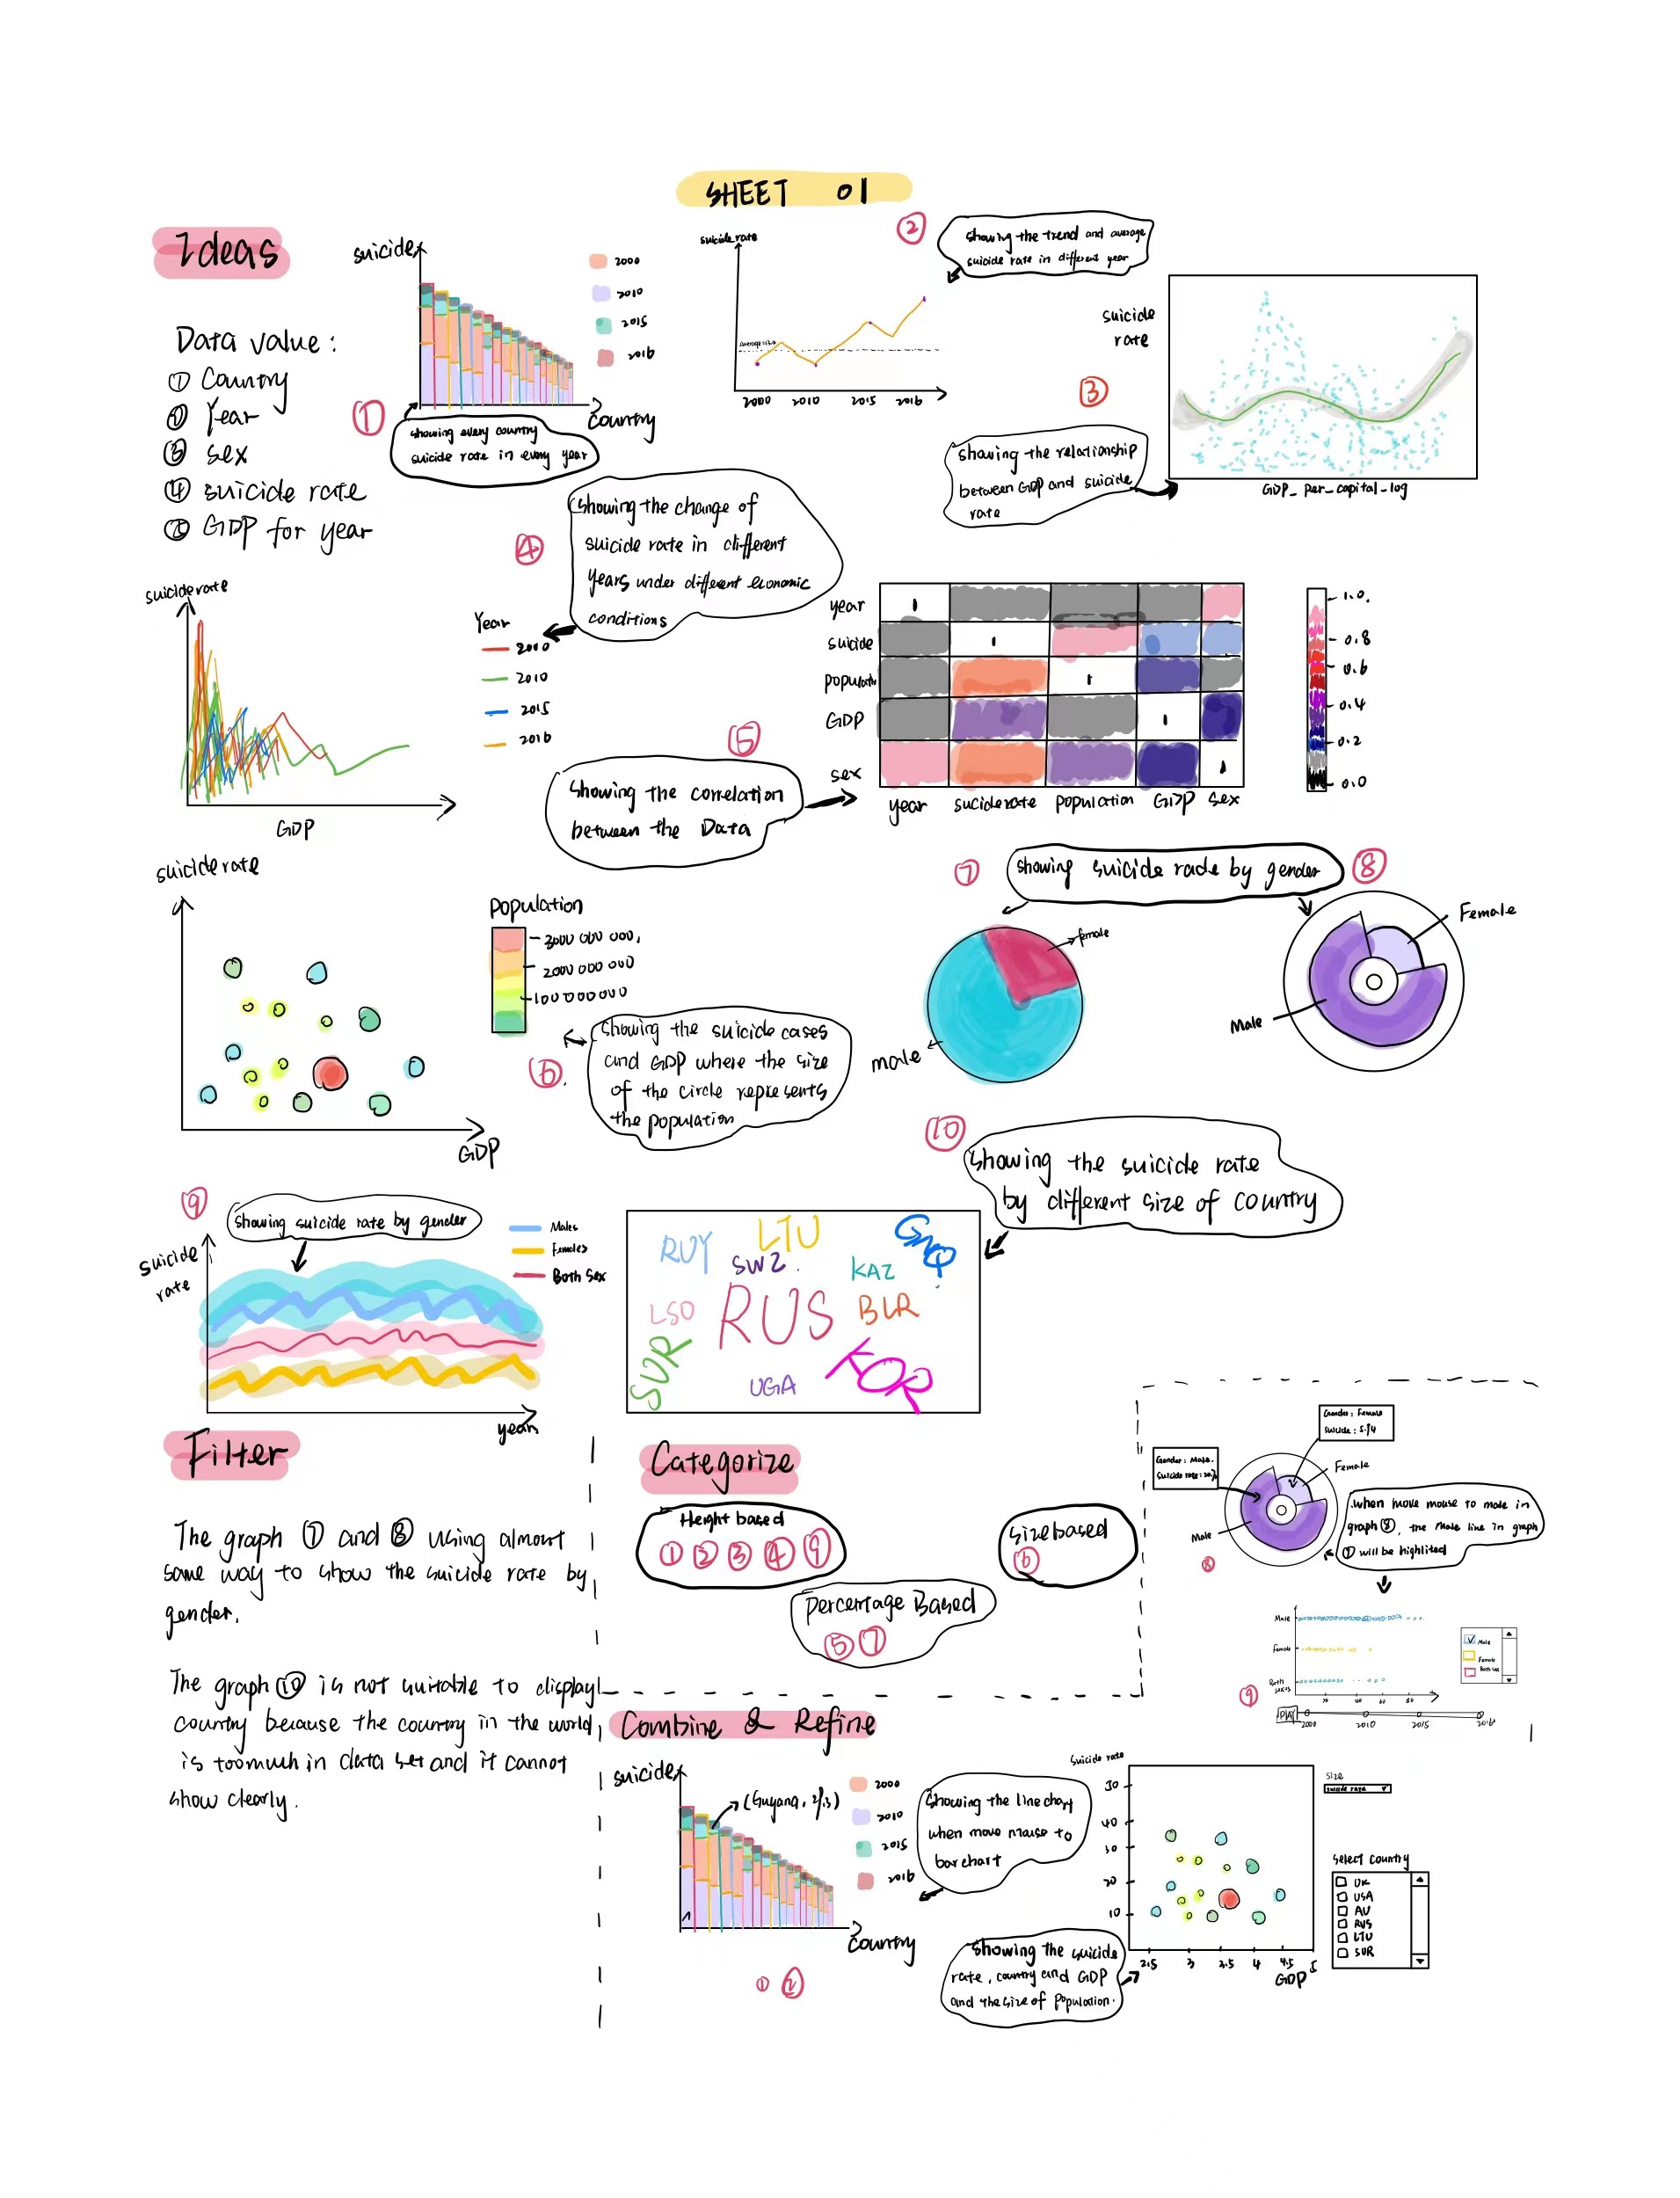 SHEET 01
Ideas
Data value:
① Country
② Year
③ sex
④ suicide rate
⑤ GDP for year
suicide
2000
2010
2015
2016
Country
①
showing every country
suicide rate in every year
suicide rate
2000 2010 2015 2016
②
showing the trend and average
suicide rate in different year
③
suicide
rate
GDP_per_capital_log
showing the relationship
between GDP and suicide
rate
④
showing the change of
suicide rate in different
years under different economic
conditions
suicide rate
GDP
Year
2010
2015
2016
⑤
showing the correlation
between the Data
year
suicide
GDP
sex
1
1
1
1
1
year suciderate population GDP sex
1.0
0.8
0.6
0.4
0.2
0.0
suicide rate
GDP
population
3000 000 000
2000 000 000
100 000 000
⑥
showing the suicide cases
and GDP where the size
of the circle represents
the population
⑦
showing suicide rade by gender
⑧
female
male
Female
Male
⑨
showing suicide rate by gender
suicide
rate
year
Males
Females
Both Sex
⑩
showing the suicide rate
by different size of country
RUY
LTU
GNQ
SWZ
KAZ
LSO
RUS
BLR
SUR
UGA
KOR
Filter
The graph ⑦ and ⑧ using almost
same way to show the suicide rate by
gender.
The graph ⑩ is not suitable to display
country because the country in the world
is toomuch in data set and it cannot
show clearly.
Categorize
Height based
① ② ③ ④ ⑨
size based
⑥
percentage Based
⑤ ⑦
Gender: Female
Gender: Male
Female
Male
⑧
when move mouse to male in
graph ⑧, the male line in graph
will be highlited
Male
Female
Both
sexes
Male
Female
Both sex
⑨
PLAY
2000 2010 2015 2016
Combine & Refine
suicide
2000
2010
2015
2016
Country
① ②
showing the line chart
when move mouse to
bar chart
suicide rate
40
30
20
10
2.5 3 3.5 4 4.5 5
GDP
size
suicide rate
select country
UK
USA
AU
RUS
LTU
SUR
showing the suicide
rate, country and GDP
and the size of population.